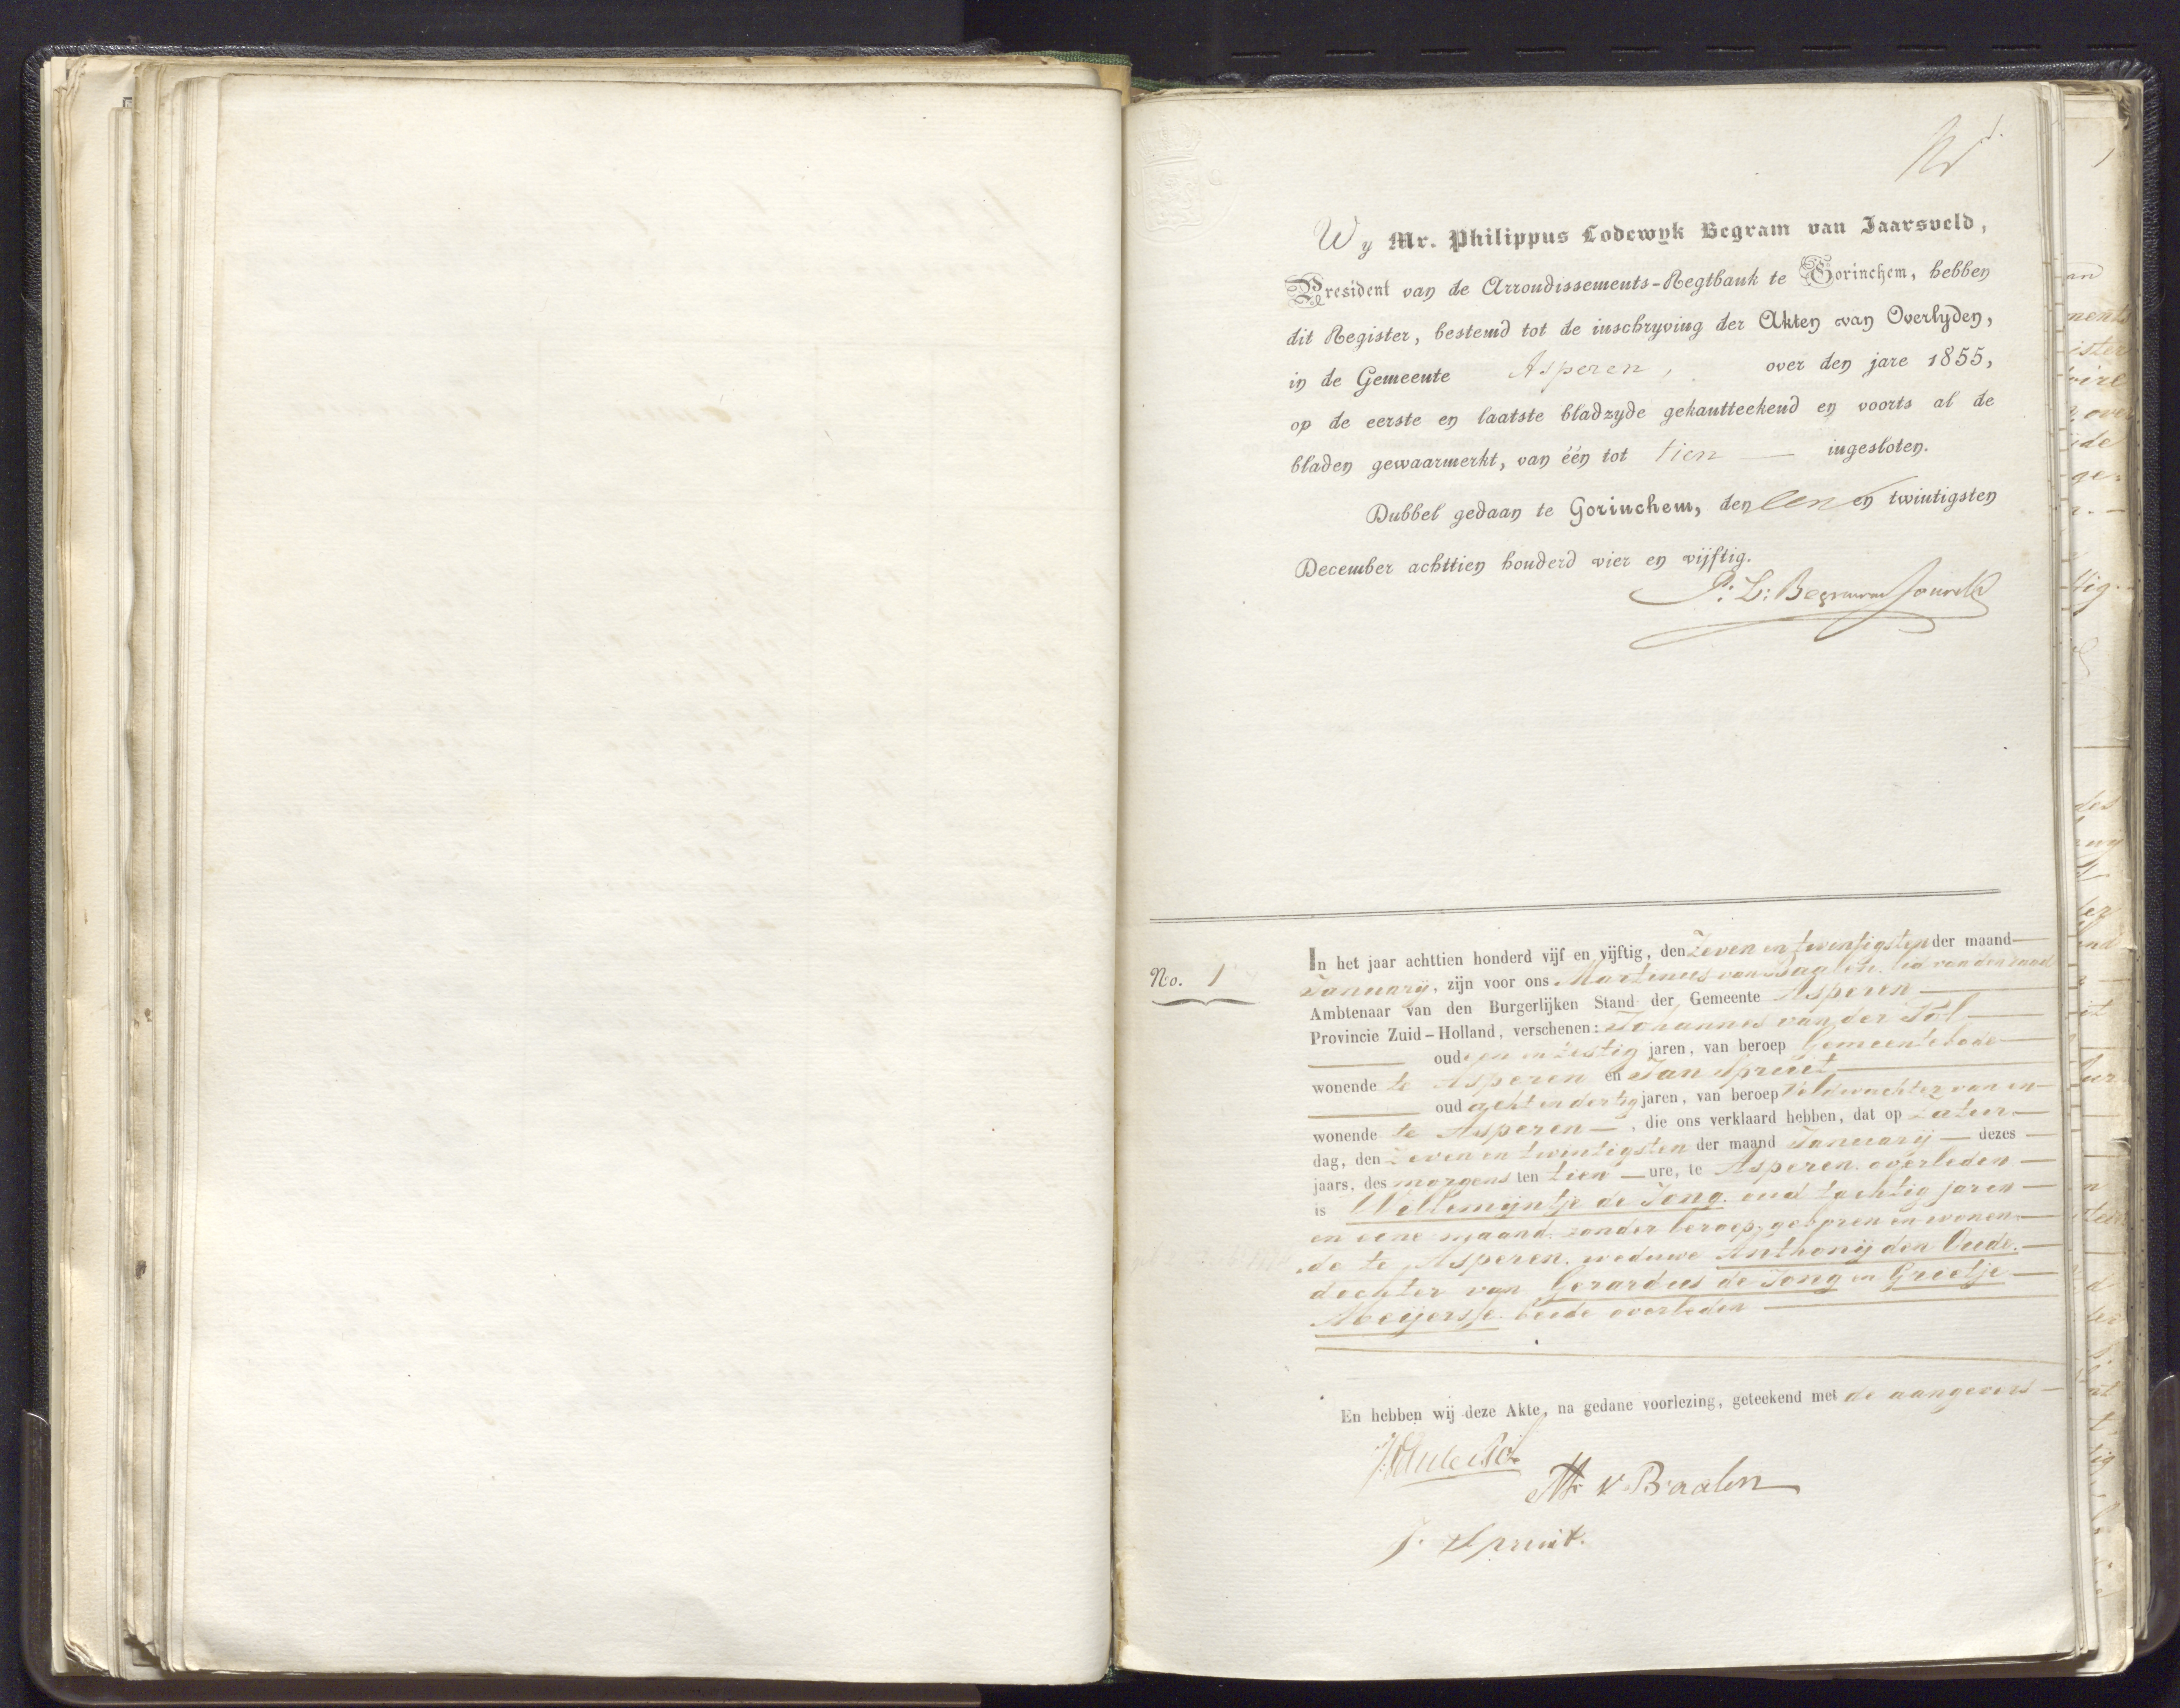 Wy Mr. Philippus Lodewyk Begram van Jaarsveld,
President van de Arrondissements-Regtbank te Gorinchem, hebben
dit Register, bestemd tot de inschryving der Akten van Overlyden,
in de Gemeente Asperen, over den jare 1855,
op de eerste en laatste bladzyde gekantteekend en voorts al de
bladen gewaarmerkt, van één tot tien — ingesloten.
Dubbel gedaan te Gorinchem, den een en twintigsten
December achttien honderd vier en vijftig.
P: L: Begram van Jaarsveld
No. 1
In het jaar achttien honderd vijf en vijftig, den Zeven en twintigsten der maand
January, zijn voor ons Martinus van Baalen, lid van den raad
Ambtenaar van den Burgerlijken Stand der Gemeente Asperen
Provincie Zuid-Holland, verschenen: Johannes van der Pol
oud een en zestig jaren, van beroep Gemeentebode
wonende te Asperen en Jan Spruit
oud acht en dertig jaren, van beroep Veldwachter van en
wonende te Asperen —, die ons verklaard hebben, dat op zatur-
dag, den Zeven en twintigsten der maand Januarij — dezes
jaars, des morgens ten tien — ure, te Asperen overleden
is Willemijntje de Jong, oud tachtig jaren
en eene maand, zonder beroep, geboren en wonen-
de te Asperen, weduwe Anthonij den Oude.
dochter van Gerardus de Jong en Grietje
Meijersse beide overleden
En hebben wij deze Akte, na gedane voorlezing, geteekend met de aangevers
M v Baalen
J. Spruit.